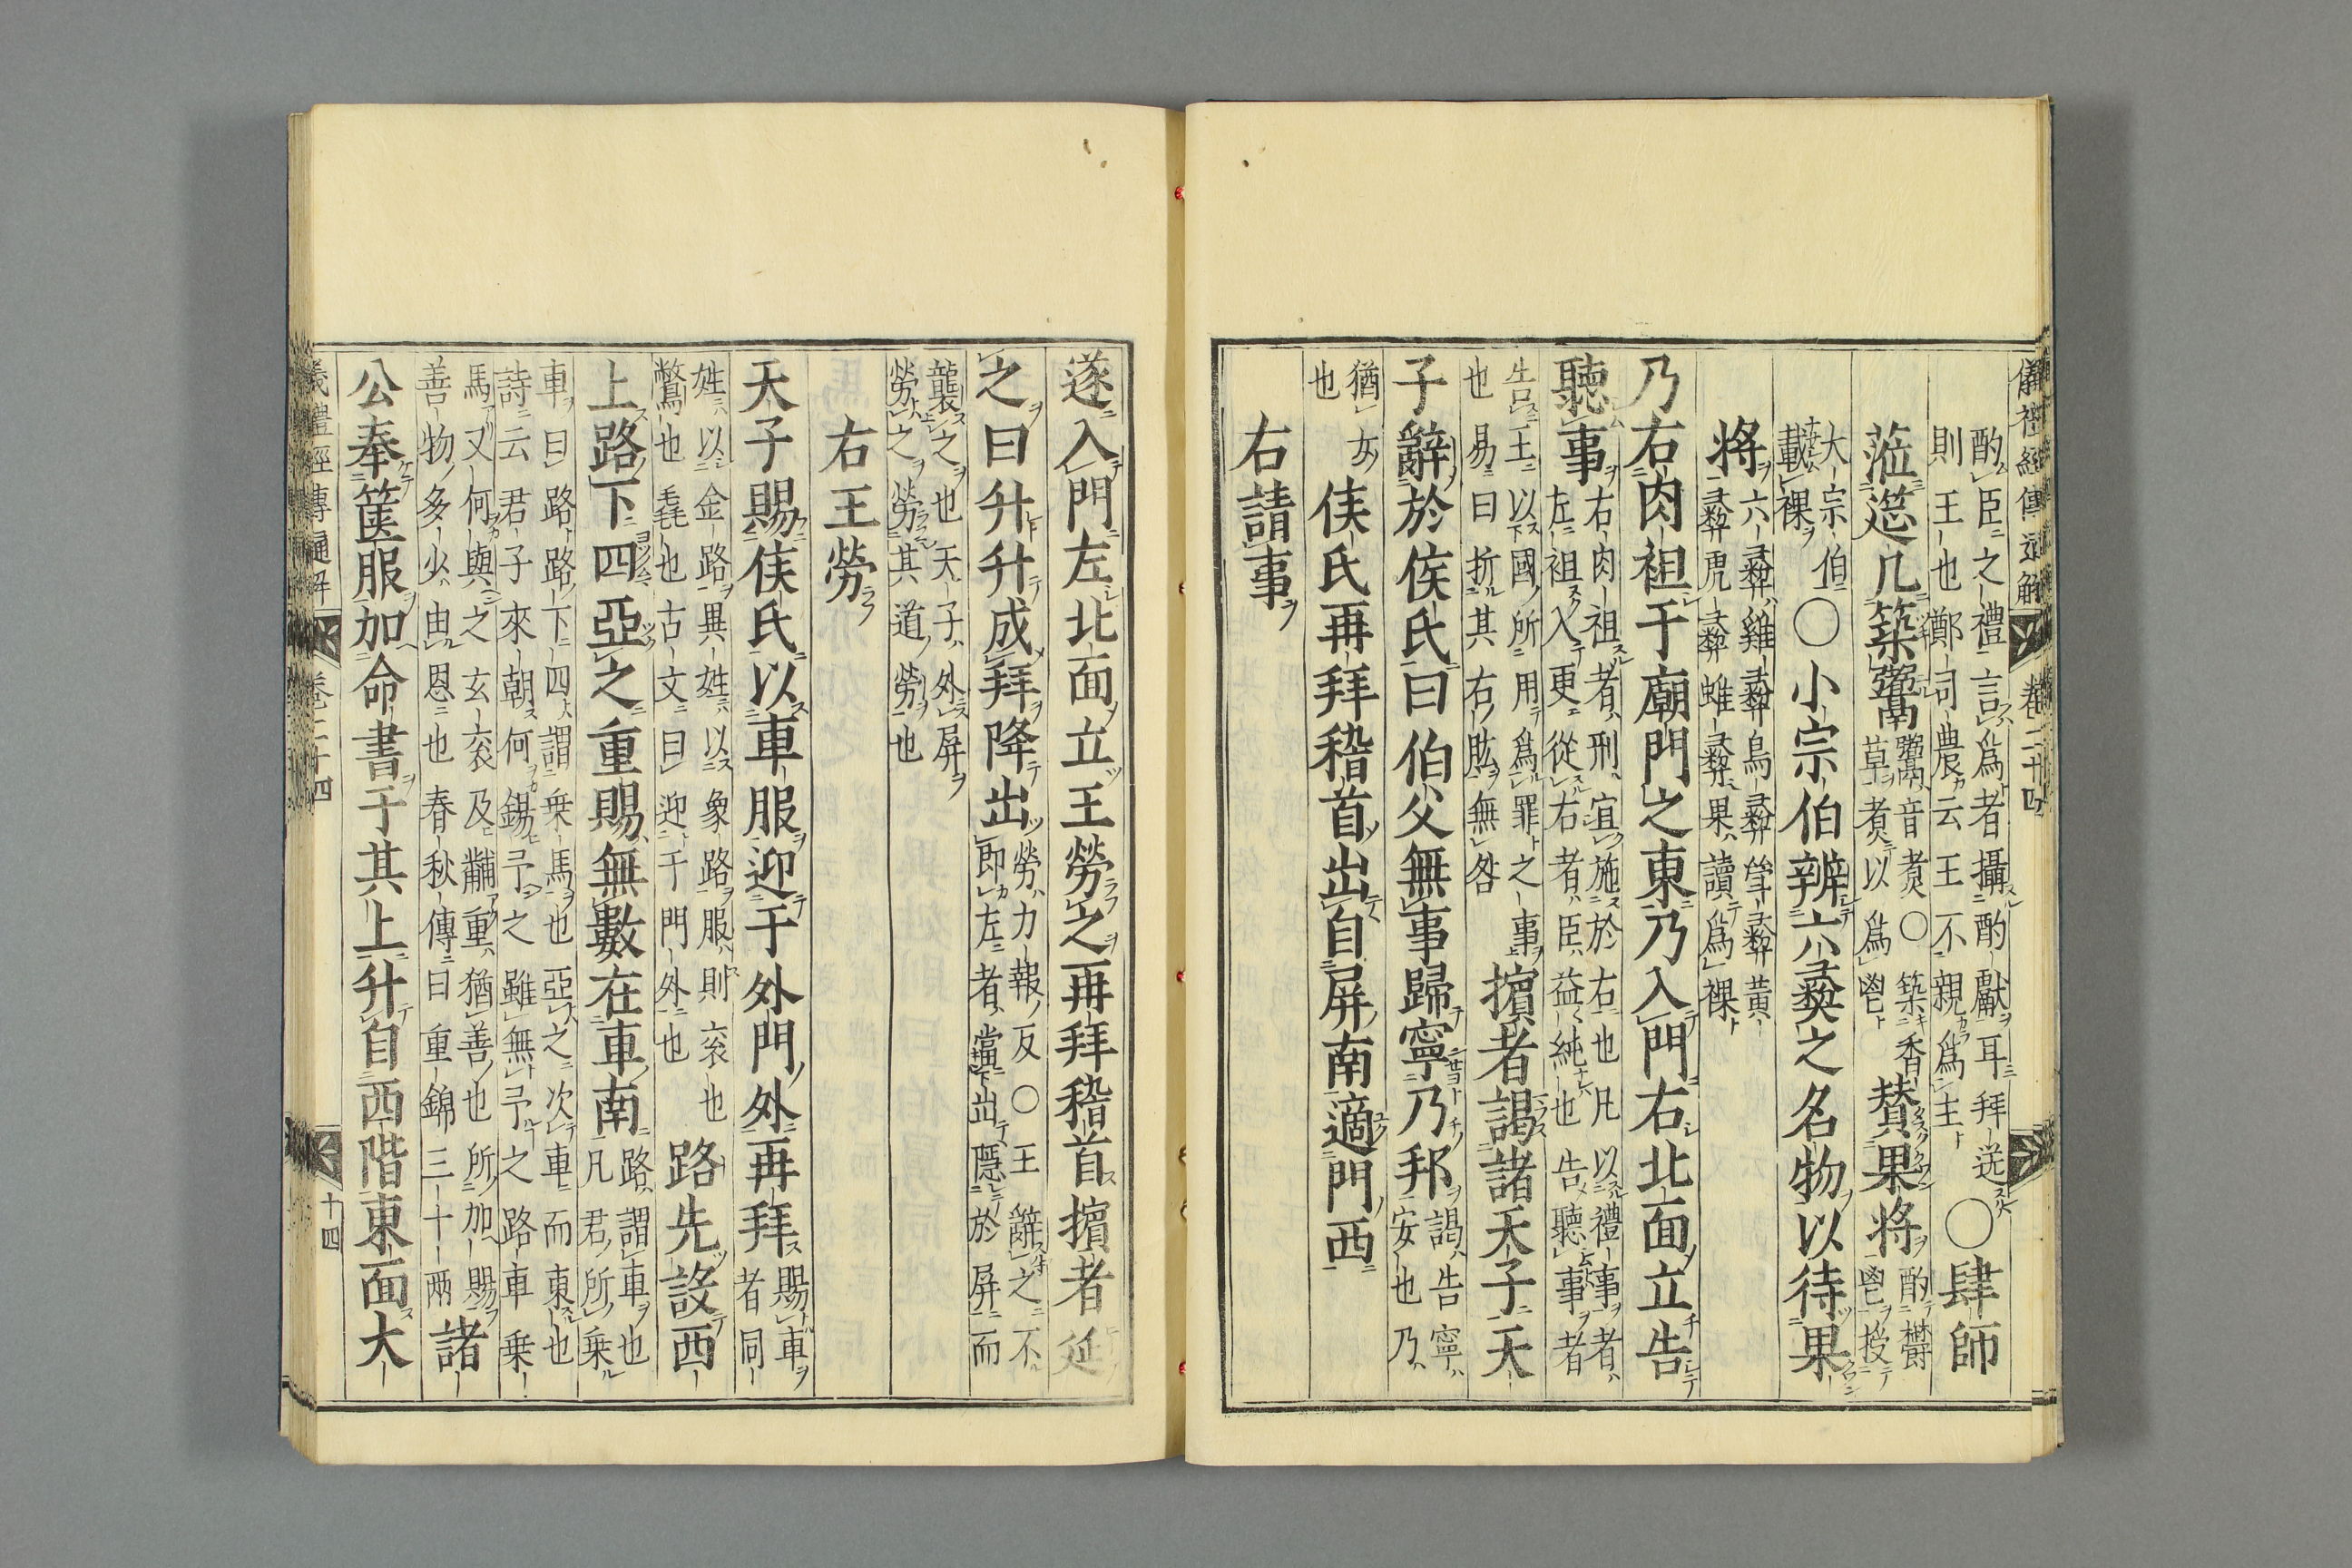 儀禮經傳通解 卷二十四
酌臣之禮言爲者攝酌獻耳拜送
則王也鄭司農云王不親爲主
○肆師
涖筵几築鬻
鬻音煑○築香
草煑以爲鬯
贊果將
酌鬱
鬯授
大宗伯
載祼
○小宗伯辨六彝之名物以待果
將
六彝雞彝鳥彝斝彝黃
彝虎彝蜼彝果讀爲祼
乃右肉袒于廟門之東乃入門右北面立告
聽事
右肉袒者刑宜施於右也凡以禮事者
左袒入更從右者臣益純也告聽事者
告王以國所用爲罪之事
也易曰折其右肱無咎
擯者謁諸天子天
子辭於侯氏曰伯父無事歸寧乃邦
謁告寧
安也乃
猶女
也
侯氏再拜稽首出自屏南適門西
右請事
遂入門左北面立王勞之再拜稽首擯者延
之曰升升成拜降出
勞力報反○王辭之不
即左者當出隱於屏而
襲之也天子外屏
勞之勞其道勞也
右王勞
天子賜侯氏以車服迎于外門外再拜
賜車
者同
姓以金路異姓以象路服則衮也
鷩也毳也古文曰迎于門外也
路先設西
上路下四亞之重賜無數在車南
路謂車也
凡君所乗
車曰路路下四謂乗馬也亞之次車而東也
詩云君子來朝何錫予之雖無予之路車乗
馬又何與之玄衮及黼重猶善也所加賜
善物多少由恩也春秋傳曰重錦三十兩
諸
公奉篋服加命書于其上升自西階東面大
儀禮經傳通解 卷二十四 十四